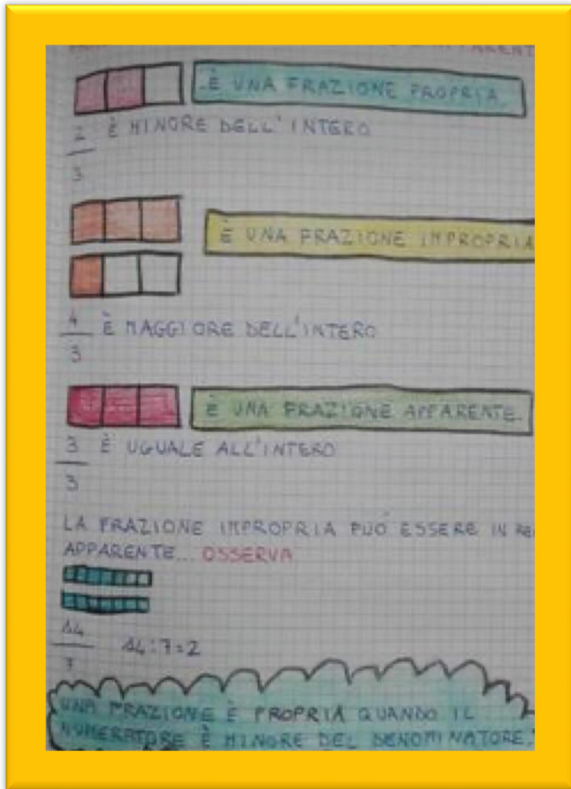 È UNA FRAZIONE PROPRIA.
2/3 È MINORE DELL'INTERO
È UNA FRAZIONE IMPROPRIA
4/3 È MAGGIORE DELL'INTERO
È UNA FRAZIONE APPARENTE.
3/3 È UGUALE ALL'INTERO
LA FRAZIONE IMPROPRIA PUÓ ESSERE IN
APPARENTE... OSSERVA
14/7 14:7=2
UNA FRAZIONE È PROPRIA QUANDO IL
NUMERATORE È MINORE DEL DENOMINATORE.